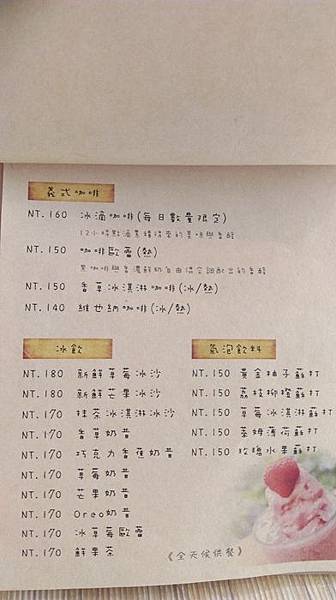 義式咖啡
NT.160 冰滴咖啡(每日數量限定)
NT.150 咖啡歐蕾(熱)
NT.150 香草冰淇淋咖啡(冰/熱)
NT.140 維也納咖啡(冰/熱)
冰飲
NT.180 新鮮草莓冰沙
NT.180 新鮮芒果冰沙
NT.170 抹茶冰淇淋冰沙
NT.170 香草奶昔
NT.170 巧克力香蕉奶昔
NT.170 草莓奶昔
NT.170 芒果奶昔
NT.170 Oreo奶昔
NT.170 冰草莓歐蕾
NT.170 鮮果茶
氣泡飲料
NT.150 黃金柚子蘇打
NT.150 荔枝柳橙蘇打
NT.150 草莓冰淇淋蘇打
NT.150 萊姆薄荷蘇打
NT.150 玫瑰水果蘇打
《全天候供餐》